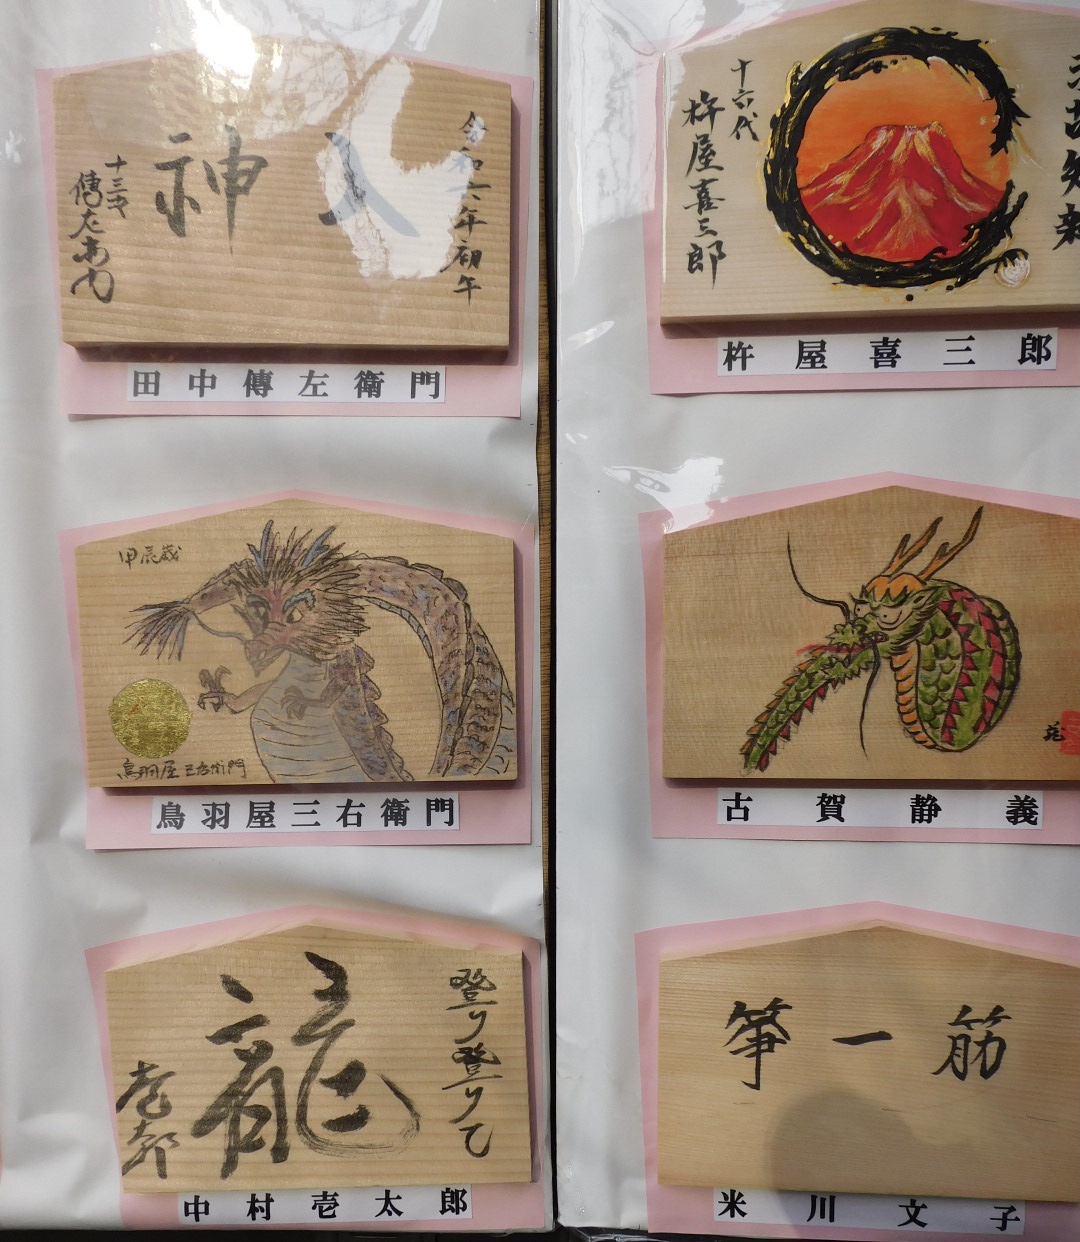 令和六年初午
入神
十三代
傳左衛門
田中傳左衛門
十六代
杵屋喜三郎
杵屋喜三郎
甲辰歳
鳥羽屋三右衛門
鳥羽屋三右衛門
古賀静義
登り登りて
龍
壱太郎
中村壱太郎
筋一筝
米川文子